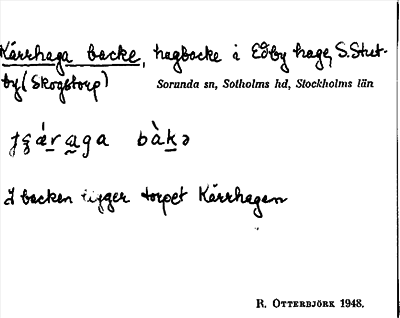 Kärrhaga backe, hagbacke i Edby hage, S. Stut-
by (Skogstorp)
Sorunda sn, Sotholms hd, Stockholms län
bàkə
I backen ligger torpet Kärrhagen
R. OTTERBJÖRK 1948.